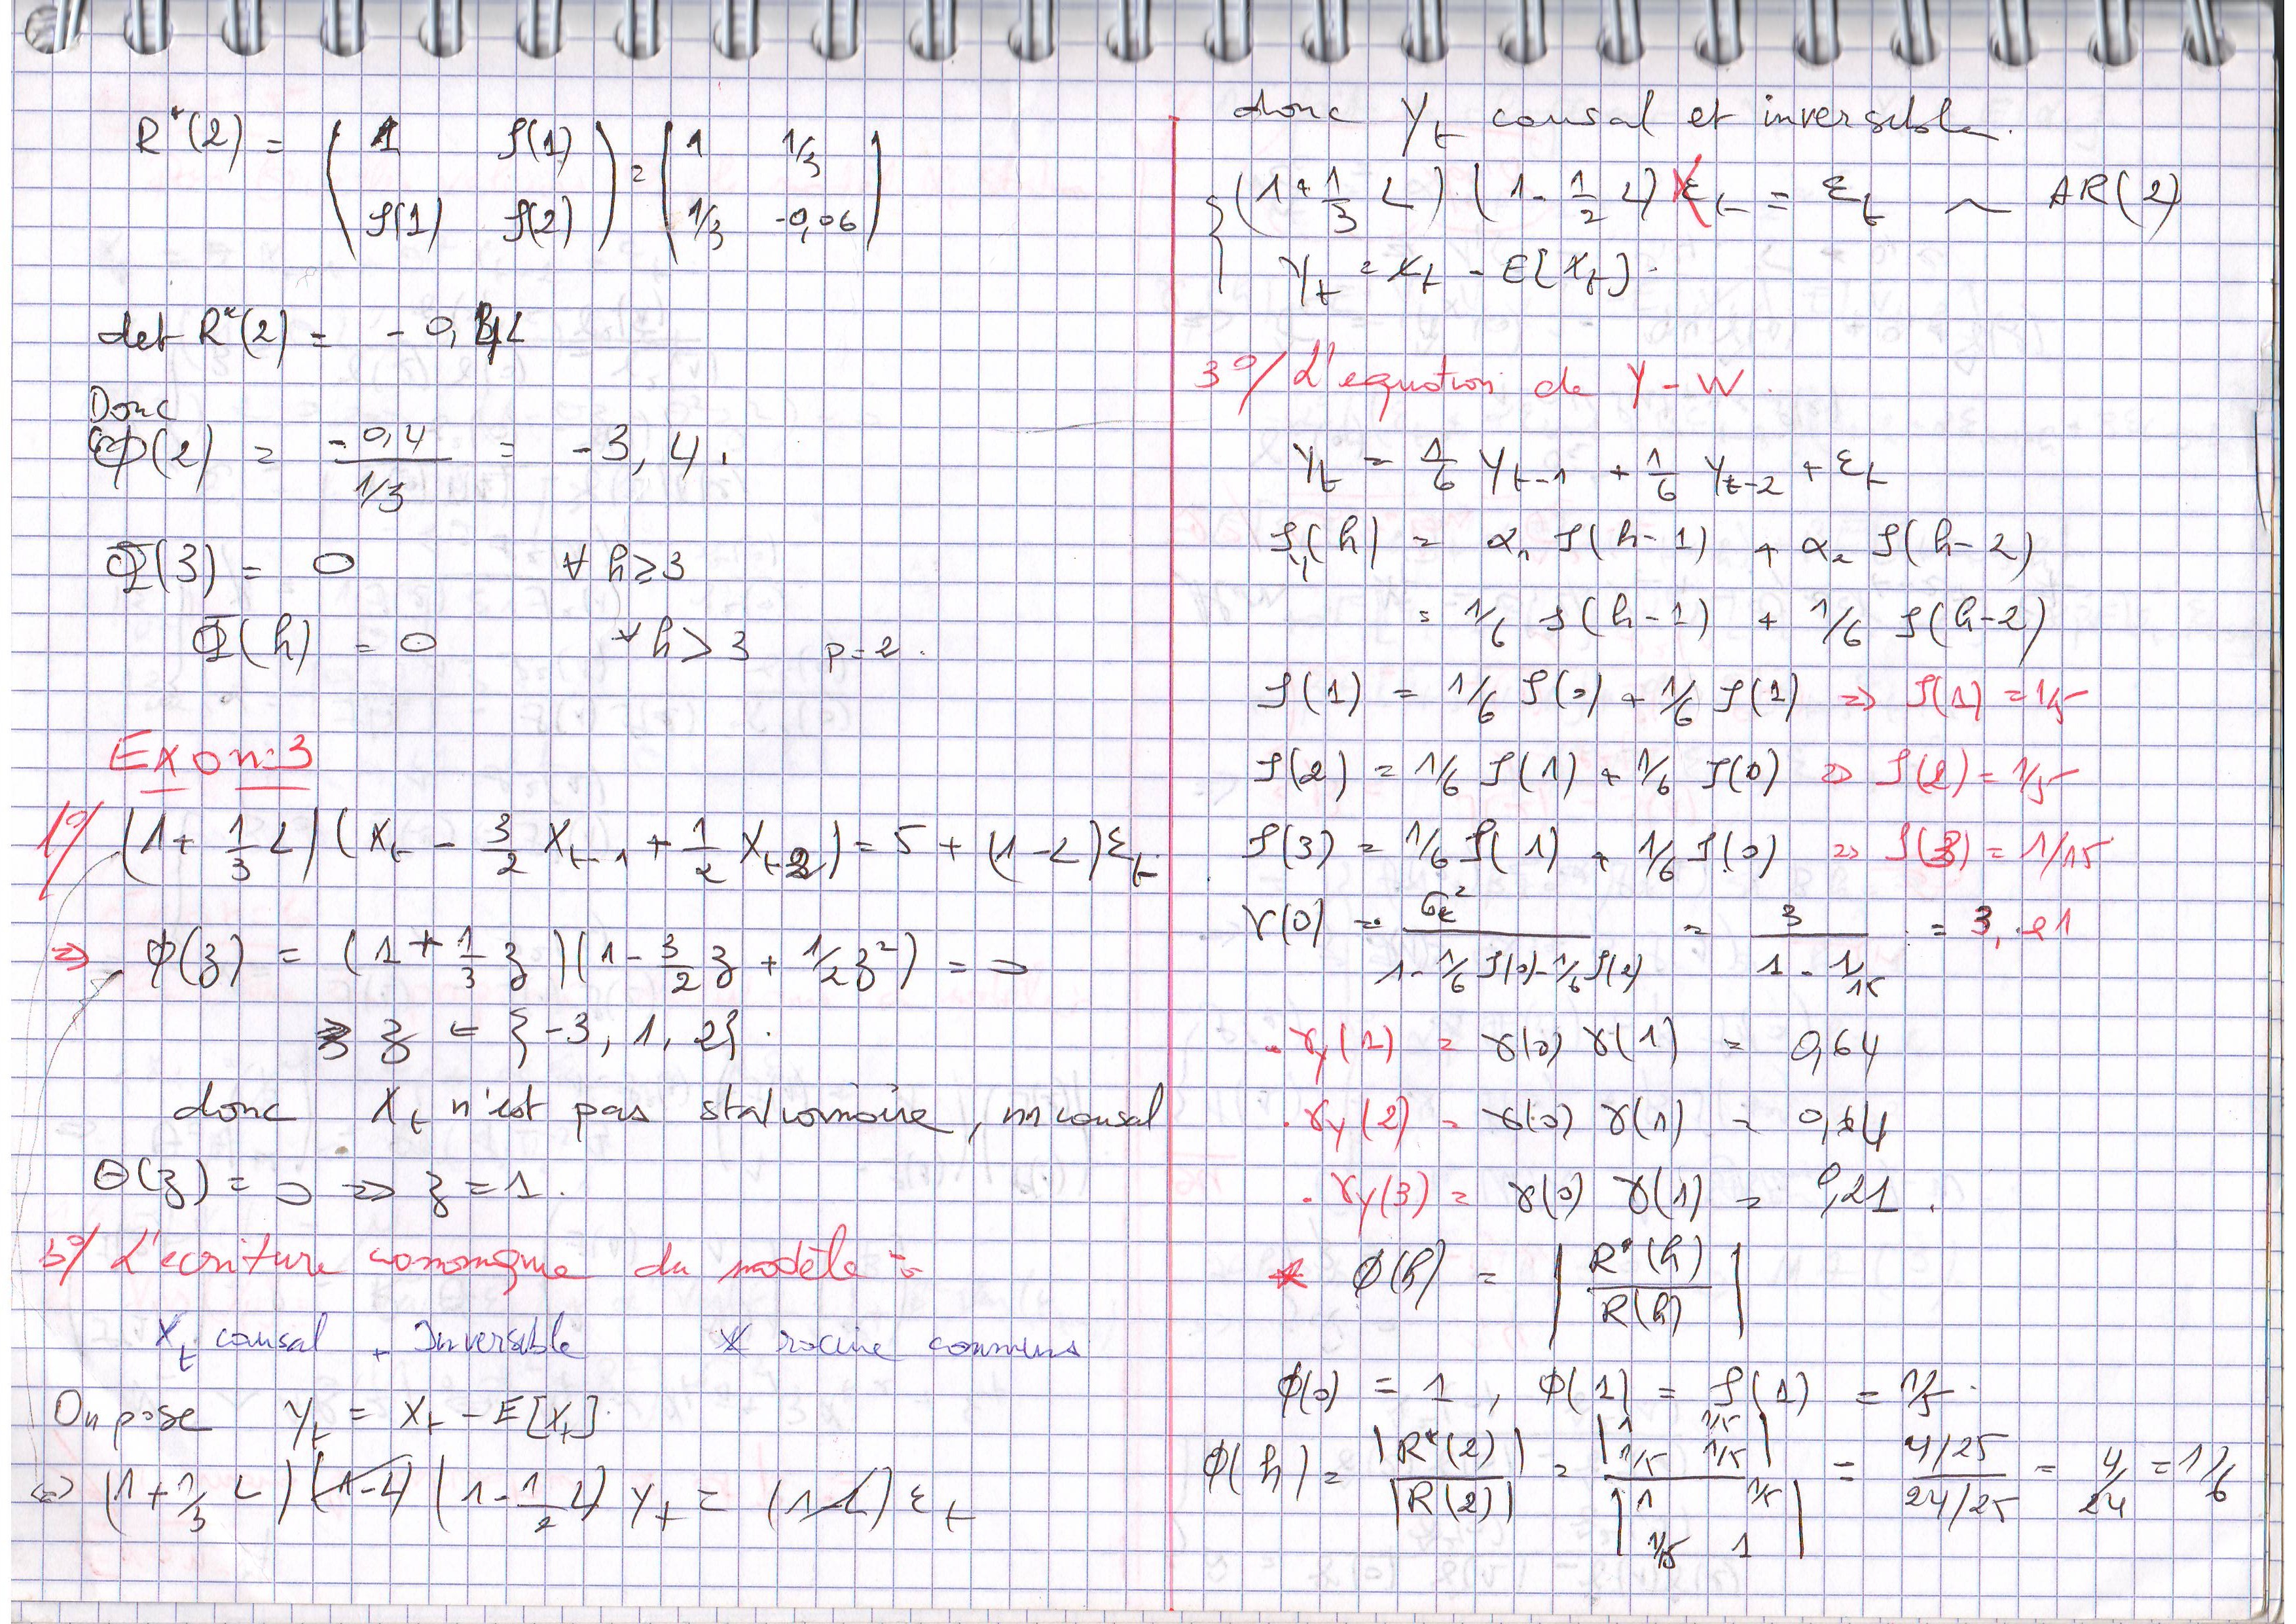 R*(2) = ( 1 ρ(1) ) = ( 1 1/3 )
( ρ(1) ρ(2) ) ( 1/3 -0,06 )
det R*(2) = - 0,
Donc
Φ(2) = -0,4 / 1/3 = -3,4.
Φ(3) = 0 ∀ h≥3
Φ(h) = 0 ∀ h > 3 p=2.
Exo n:3
1°/ (1 + 1/3 L)(X_t - 3/2 X_t-1 + 1/2 X_t-2) = 5 + (1-L)ε_t
=> φ(z) = (1 + 1/3 z)(1 - 3/2 z + 1/2 z²) = 0
z = {-3, 1, 2}.
donc X_t n'est pas stationnaire, ni causal
Θ(z) = 0 => z = 1.
b°/ L'ecriture canonique du modèle :
X_t causal + Inversible * racine communs
On pose Y_t = X_t - E[X_t].
<=> (1 + 1/3 L)(1-L)(1 - 1/2 L) Y_t = (1-L) ε_t
donc Y_t causal et inversible.
{ (1 + 1/3 L)(1 - 1/2 L) ε_t = ε_t ~ AR(2)
Y_t = X_t - E[X_t].
3°/ L'equation de Y-W.
Y_t = 1/6 Y_t-1 + 1/6 Y_t-2 + ε_t
ρ_Y(h) = α_1 ρ(h-1) + α_2 ρ(h-2)
= 1/6 ρ(h-1) + 1/6 ρ(h-2)
ρ(1) = 1/6 ρ(0) + 1/6 ρ(1) => ρ(1) = 1/5
ρ(2) = 1/6 ρ(1) + 1/6 ρ(0) => ρ(2) = 1/5
ρ(3) = 1/6 ρ(1) + 1/6 ρ(0) => ρ(3) = 1/15
γ(0) = σ_ε² / 1 - 1/6 ρ(0) - 1/6 ρ(2) = 3 / 1 - 1/15 = 3,21
. γ_Y(1) = γ(0) γ(1) = 0,64
. γ_Y(2) = γ(0) γ(1) = 0,64
. γ_Y(3) = γ(0) γ(1) = 0,21.
* φ(h) = | R*(h) / R(h) |
φ(0) = 1, φ(1) = ρ(1) = 1/5.
φ(h) = |R*(2)| / |R(2)| = | 1 1/5 ; 1/5 1/5 | / | 1 1/5 ; 1/5 1 | = 4/25 / 24/25 = 4/24 = 1/6